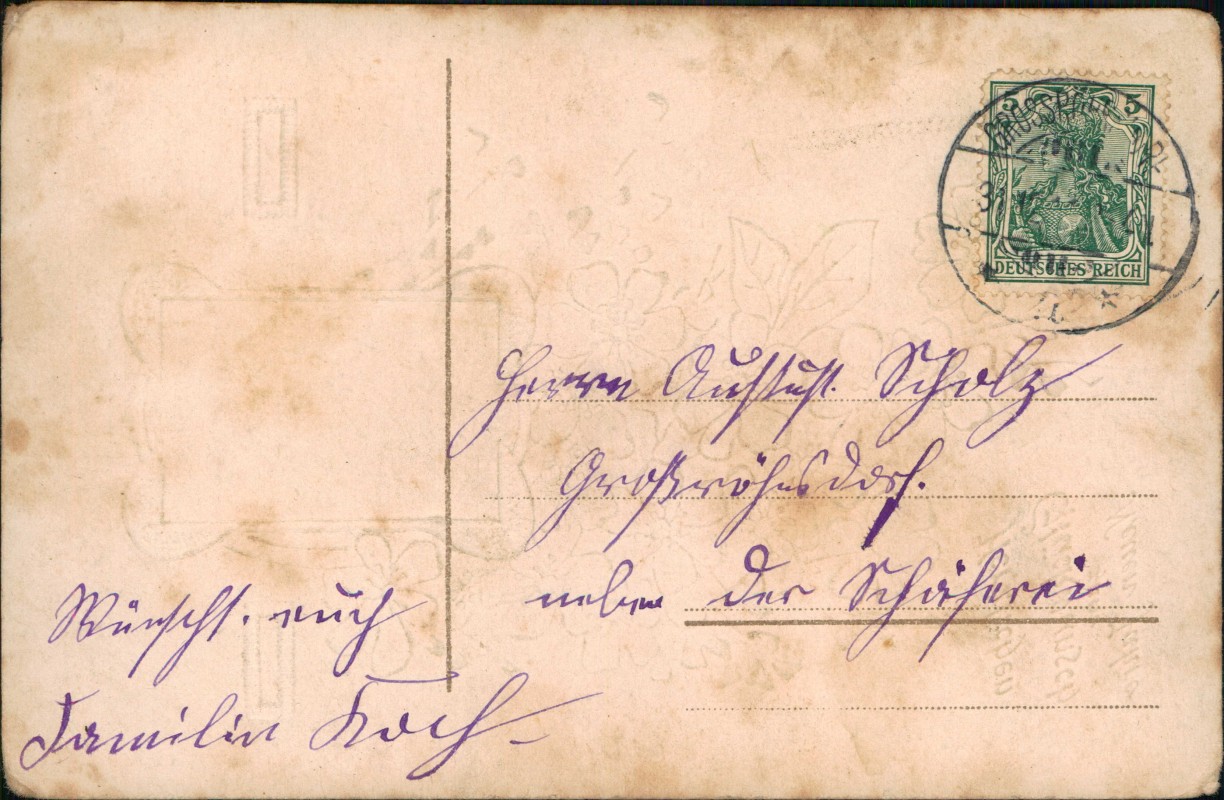 5 5
DEUTSCHES REICH
Herrn August Scholz
Großröhrsdorf.
neben der Schäferei
Wünscht. euch
Familie Koch